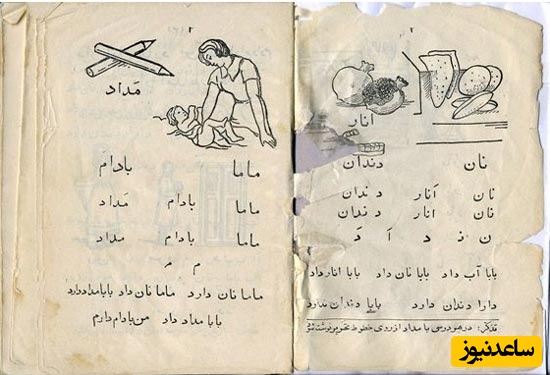 ۲
انار
نان دندان
نان انار دندان
نان انار دندان
ن ذ د اَ دَ
بابا آب داد بابا نان داد بابا انار داد
دارا دندان دارد بابا دندان ندارد
تذکر: در هر درسی با مداد از روی خطوط
۳
مَداد
ماما بادام
ماما بادام مَداد
ماما بادام مداد
م مـ
ماما نان دارد ماما نان داد بابا مداد دارد
بابا مداد داد من بادام دارم
ساعدنیوز